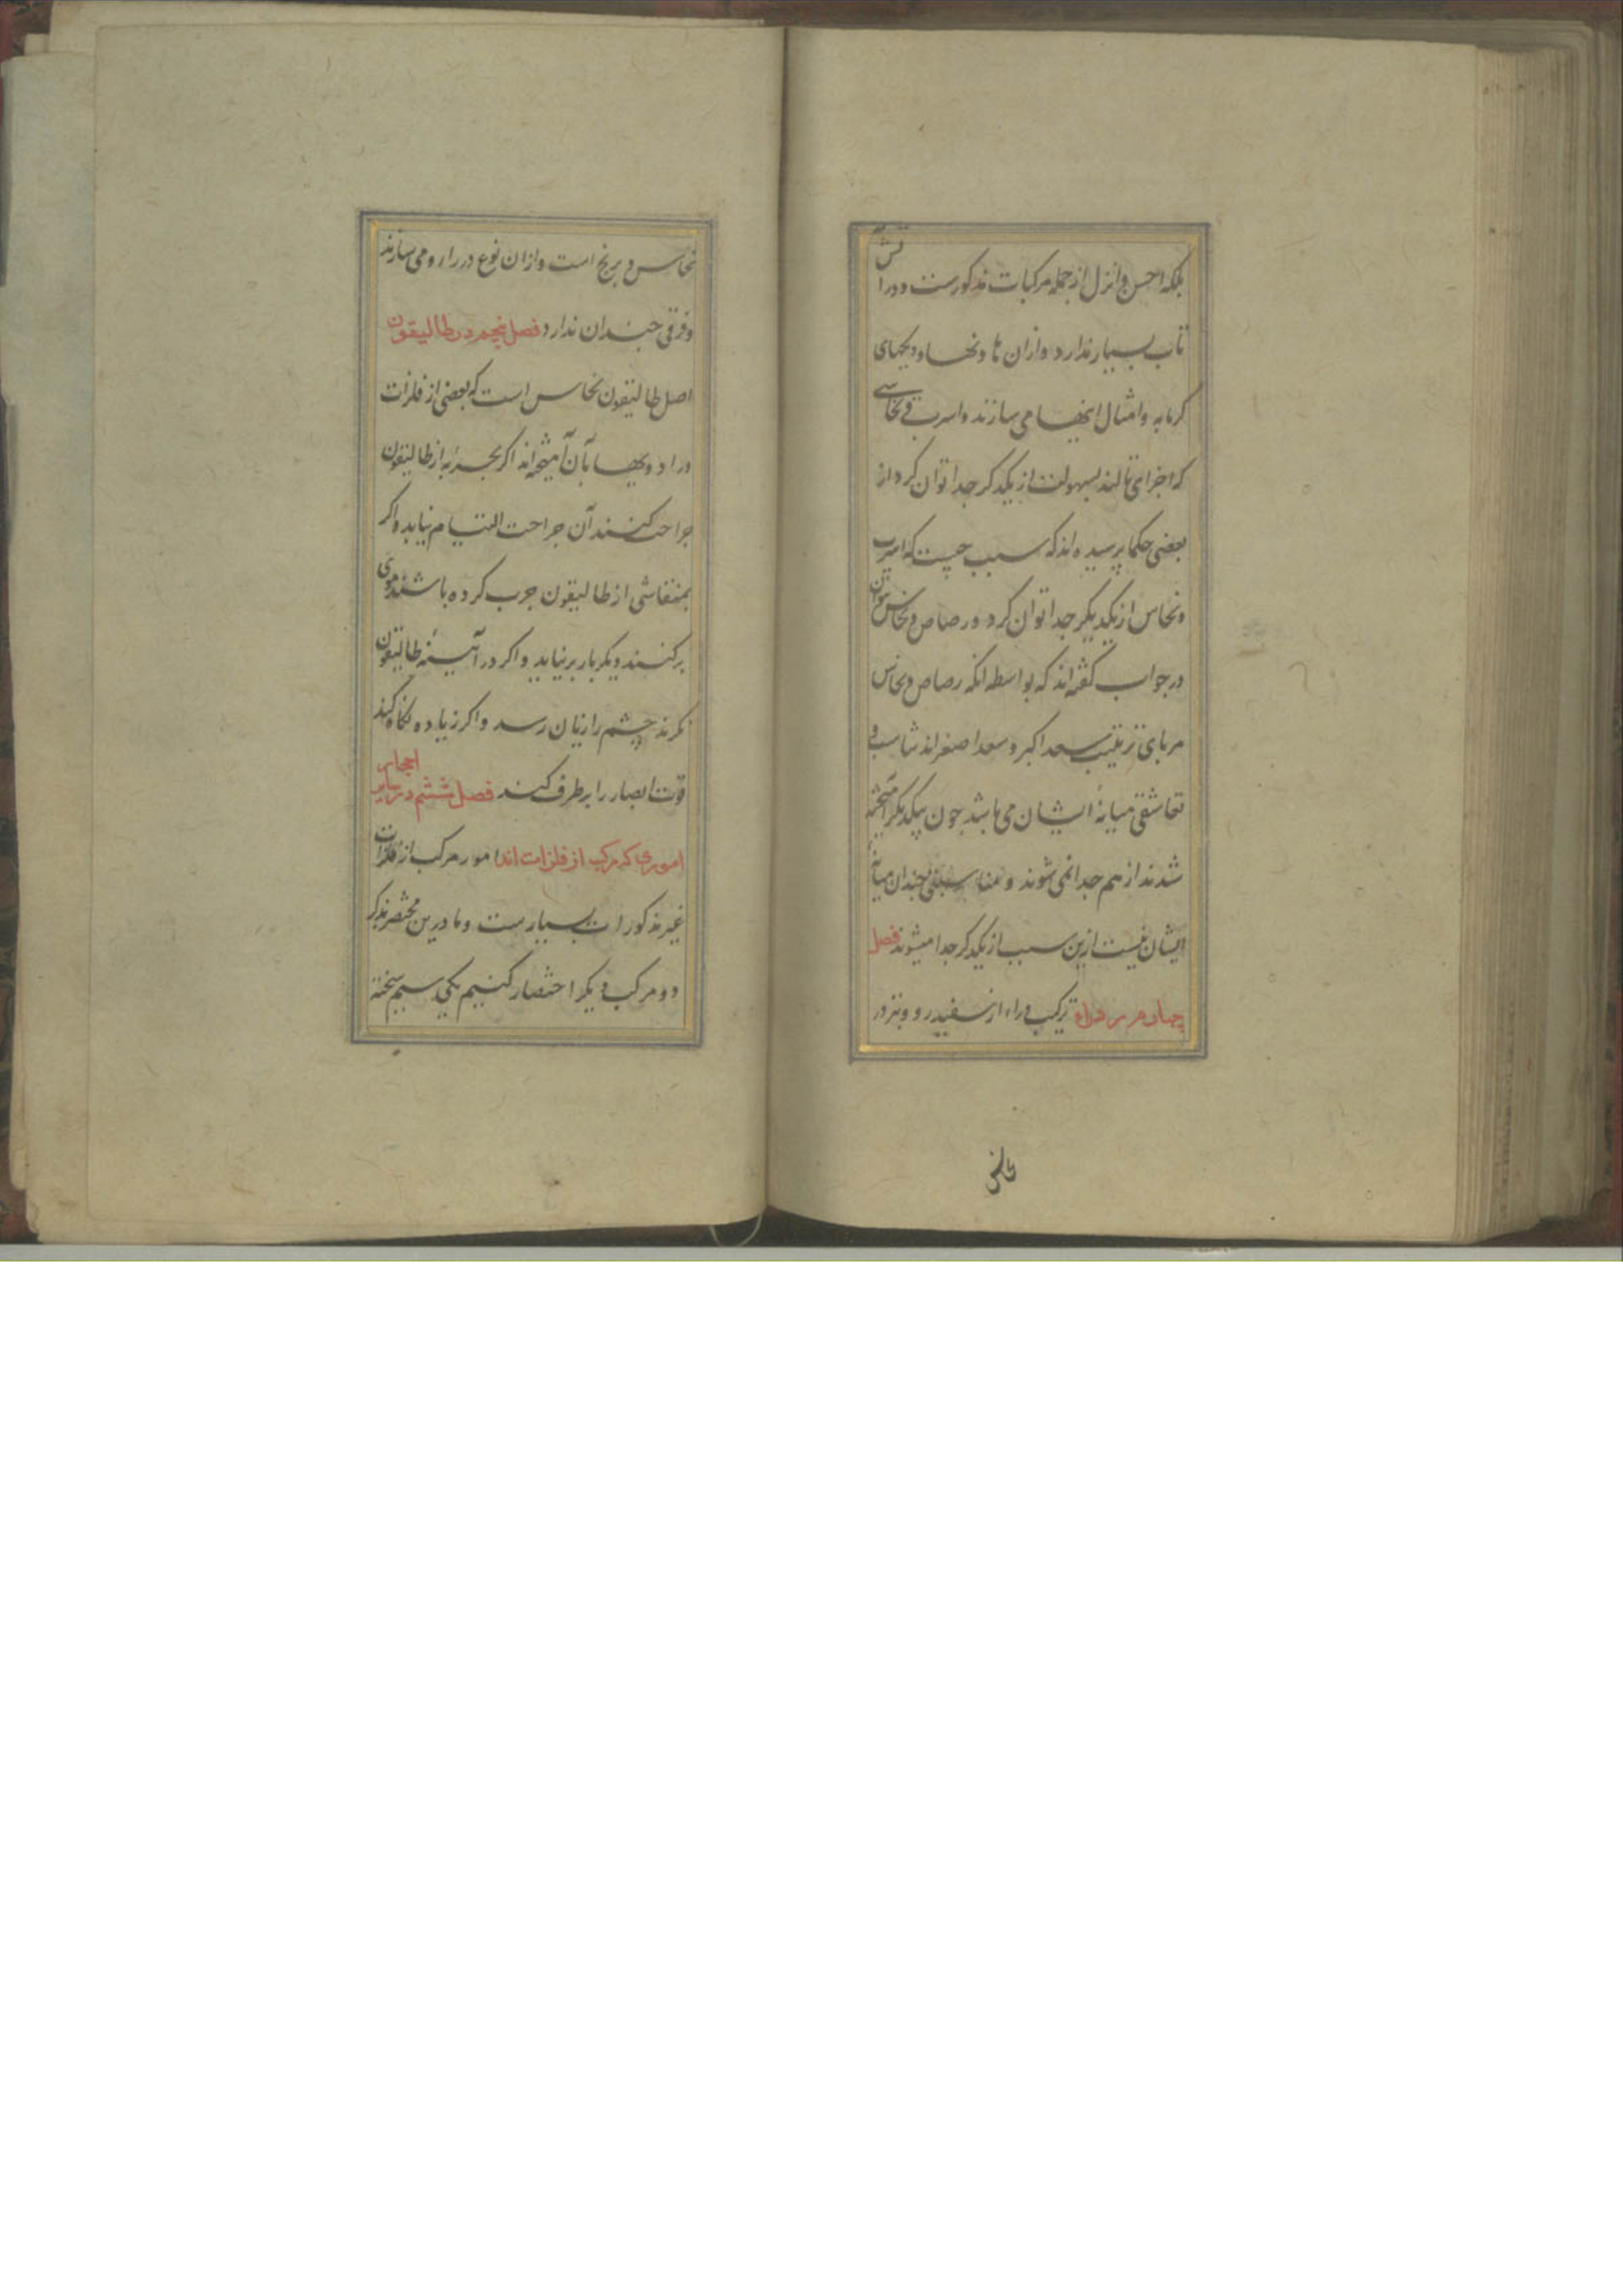 بلکه احس و انزل از جمله مرکبات مذکورست و در آتش
تاب بسیار ندارد و ازان هاونها و دیکهای
کرمابه و امثال اینها می سازند و اسرب و نحاسی
که اجزای تالند بسهولت از یکدکر جدا توان کرد از
بعضی حکما پرسیده اند که سبب چیست که اسرب
و نحاس از یکدیکر جدا توان کرد و رصاص و نحاس نتوان
در جواب کفته اند که بواسطه انکه رصاص و نحاس
مربای تربیت سعد اکبر و سعد اصغراند تناسب و
تعاشقی میانهٔ ایشان می باشد چون بیکدیکر آمیخته
شدند از هم جدا نمی شوند و مناسبتی چندان میانه
ایشان نیست ازین سبب از یکدکر جدا میشوند فصل
چهارم در ترکیب دراء از سفیدرو و نیز در
نحاس
نحاس و برنج است و ازان نوع در رارو می سازند
و فرقی چندان ندارد فصل پنجم در طالیقون
اصل طالیقون نحاس است که بعضی از فلزات
و داروها بآن آمیخته اند اکر بحربهٔ از طالیقون
جراحت کنند آن جراحت التیام نیابد و اکر
بمنقاشی از طالیقون چرب کرده باشند موی
برکنند دیکر بار برنیاید و اکر در آیینهٔ طالیقون
نکرند چشم را زیان رسد و اکر زیاده نکاه کنند
قوت ابصار را برطرف کنند فصل ششم در سایر احجار
اموری که مرکب از فلزات اند امور مرکب از فلزات
غیر مذکورات بسیارست و ما درین مختصر بذکر
دو مرکب دیکر اختصار کنیم یکی سیم سخته